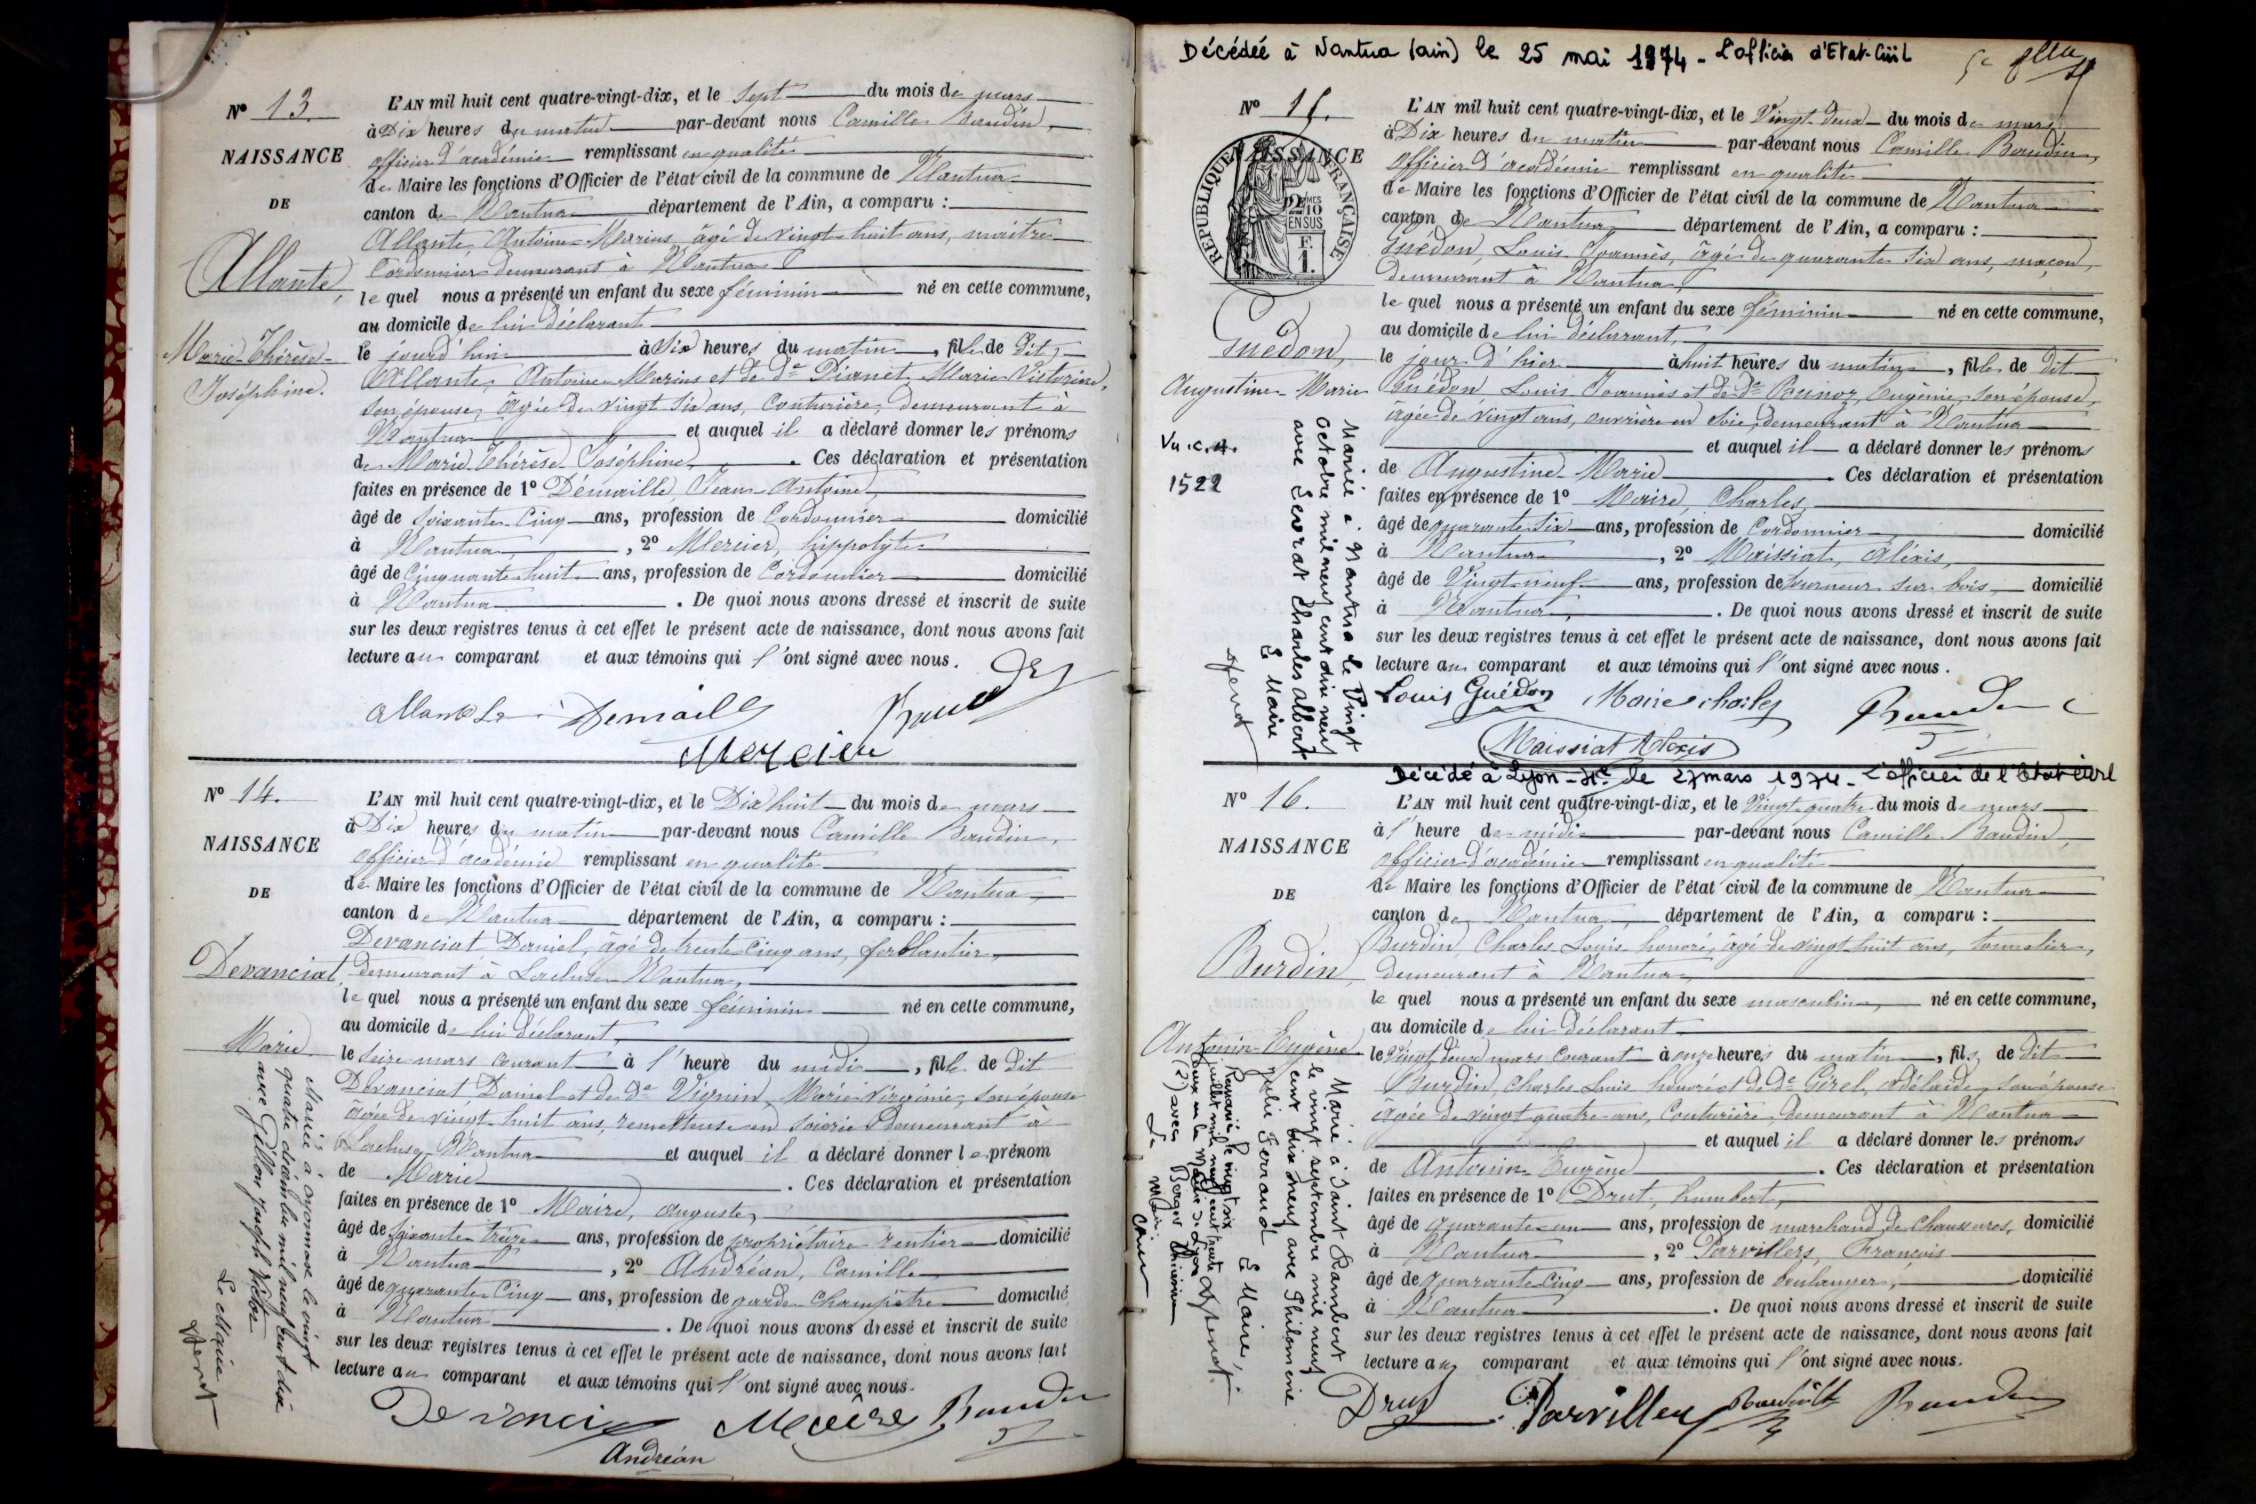 N° 13.
NAISSANCE
DE
Allante,
Marie-Thérèse-
Joséphine.
L'AN mil huit cent quatre-vingt-dix, et le Sept du mois de mars
à Dix heures du matin par-devant nous Camille Baudin,
officier d'académie remplissant en qualité
de Maire les fonctions d'Officier de l'état civil de la commune de Nantua
canton de Nantua département de l'Ain, a comparu :
Allante, Antoine-Marius, âgé de vingt-huit ans, maître
Cordonnier demeurant à Nantua
lequel nous a présenté un enfant du sexe féminin né en cette commune,
au domicile de lui déclarant
le jourd'hui à Six heures du matin, fille de Dit
Allante, Antoine-Marius et de de Pianet Marie Victorine,
son épouse, âgée de vingt six ans, Couturière, demeurant à
Nantua et auquel il a déclaré donner les prénoms
de Marie Thérèse Joséphine. Ces déclaration et présentation
faites en présence de 1° Démaille, Jean-Antoine,
âgé de Soixante Cinq ans, profession de Cordonnier domicilié
à Nantua, 2° Mercier, hippolyte
âgé de Cinquante-huit ans, profession de Cordonnier domicilié
à Nantua. De quoi nous avons dressé et inscrit de suite
sur les deux registres tenus à cet effet le présent acte de naissance, dont nous avons fait
lecture au comparant et aux témoins qui l'ont signé avec nous.
Demaille
Mercier
N° 14.
NAISSANCE
DE
Devanciat,
Marie
L'AN mil huit cent quatre-vingt-dix, et le Dix huit du mois de mars
à Dix heures du matin par-devant nous Camille Baudin,
officier d'académie remplissant en qualité
de Maire les fonctions d'Officier de l'état civil de la commune de Nantua
canton de Nantua département de l'Ain, a comparu :
Devanciat Daniel, âgé de trente Cinq ans, ferblantier,
demeurant à Lacluse-Nantua,
lequel nous a présenté un enfant du sexe féminin né en cette commune,
au domicile de lui déclarant,
le Seize mars courant à l'heure du midi, fille de Dit
Devanciat Daniel et de de Vignin, Marie-Virginie, son épouse
âgée de vingt-huit ans, remetteuse en Soierie Demeurant à
Lacluse, Nantua et auquel il a déclaré donner le prénom
de Marie. Ces déclaration et présentation
faites en présence de 1° Maire, auguste,
âgé de Soixante treize ans, profession de propriétaire rentier domicilié
à Nantua, 2° Andréan, Camille
âgé de quarante Cinq ans, profession de garde Champêtre domicilié
à Nantua. De quoi nous avons dressé et inscrit de suite
sur les deux registres tenus à cet effet le présent acte de naissance, dont nous avons fait
lecture au comparant et aux témoins qui l'ont signé avec nous.
Mariée à Oyonnax le vingt
quatre décembre mil neuf cent dix
avec Gillon Joseph Victor
Le Maire
Andréan
Décédée à Nantua (ain) le 25 mai 1974 - L'officier d'Etat-Civil
N° 15.
NAISSANCE
RÉPUBLIQUE FRANÇAISE
2/10
EN SUS
Guédon,
Augustine-Marie
Vu.c.A.
1522
L'AN mil huit cent quatre-vingt-dix, et le Vingt-deux du mois de mars
à Dix heures du matin par-devant nous Camille Baudin,
officier d'académie remplissant en qualité
de Maire les fonctions d'Officier de l'état civil de la commune de Nantua
canton de Nantua département de l'Ain, a comparu :
Guédon, Louis-Joannès, âgé de quarante six ans, maçon,
demeurant à Nantua,
lequel nous a présenté un enfant du sexe féminin né en cette commune,
au domicile de lui déclarant,
le jour d'hier à huit heures du matin, fille de dit
Guédon, Louis Joannès et de de Eugénie, son épouse,
âgée de vingt ans, ouvrière en soie, demeurant à Nantua
et auquel il a déclaré donner les prénoms
de Augustine-Marie Ces déclaration et présentation
faites en présence de 1° Maire, Charles,
âgé de quarante six ans, profession de Cordonnier domicilié
à Nantua, 2° Maissiat, Aléxis,
âgé de Vingt-neuf ans, profession de tourneur sur bois, domicilié
à Nantua. De quoi nous avons dressé et inscrit de suite
sur les deux registres tenus à cet effet le présent acte de naissance, dont nous avons fait
lecture au comparant et aux témoins qui l'ont signé avec nous.
Mariée à Nantua le Vingt
octobre mil neuf cent dix neuf
avec Levrat Charles Albert
Le Maire
Louis Guédon Maire charles
Maissiat Alexis
Décédé à Lyon - le 27 mars 1974 - L'officier de l'Etat-civil
N° 16.
NAISSANCE
DE
Burdin,
Antonin-Eugène
L'AN mil huit cent quatre-vingt-dix, et le Vingt-quatre du mois de mars
à l'heure de midi par-devant nous Camille Baudin,
officier d'académie remplissant en qualité
de Maire les fonctions d'Officier de l'état civil de la commune de Nantua
canton de Nantua, département de l'Ain, a comparu :
Burdin, Charles Louis honoré, âgé de vingt huit ans, tonnelier,
demeurant à Nantua,
lequel nous a présenté un enfant du sexe masculin, né en cette commune,
au domicile de lui déclarant
le Vingt deux mars courant à onze heures du matin, fils de Dit
Burdin, Charles Louis honoré et de de Girel, Adélaïde, son épouse
âgée de vingt quatre ans, Couturière, demeurant à Nantua
et auquel il a déclaré donner les prénoms
de Antonin-Eugène. Ces déclaration et présentation
faites en présence de 1° Drut, humbert,
âgé de quarante-un ans, profession de marchand de Chaussures, domicilié
à Nantua, 2° Parvillers, François
âgé de quarante Cinq ans, profession de boulanger, domicilié
à Nantua. De quoi nous avons dressé et inscrit de suite
sur les deux registres tenus à cet effet le présent acte de naissance, dont nous avons fait
lecture au comparant et aux témoins qui l'ont signé avec nous.
Marié à Saint Rambert
le vingt septembre mil neuf
cent dix neuf avec Philomène
Julie Ferrand Le Maire,
Remarié le vingt six
juillet mil neuf cent trente
Drut Parvillers